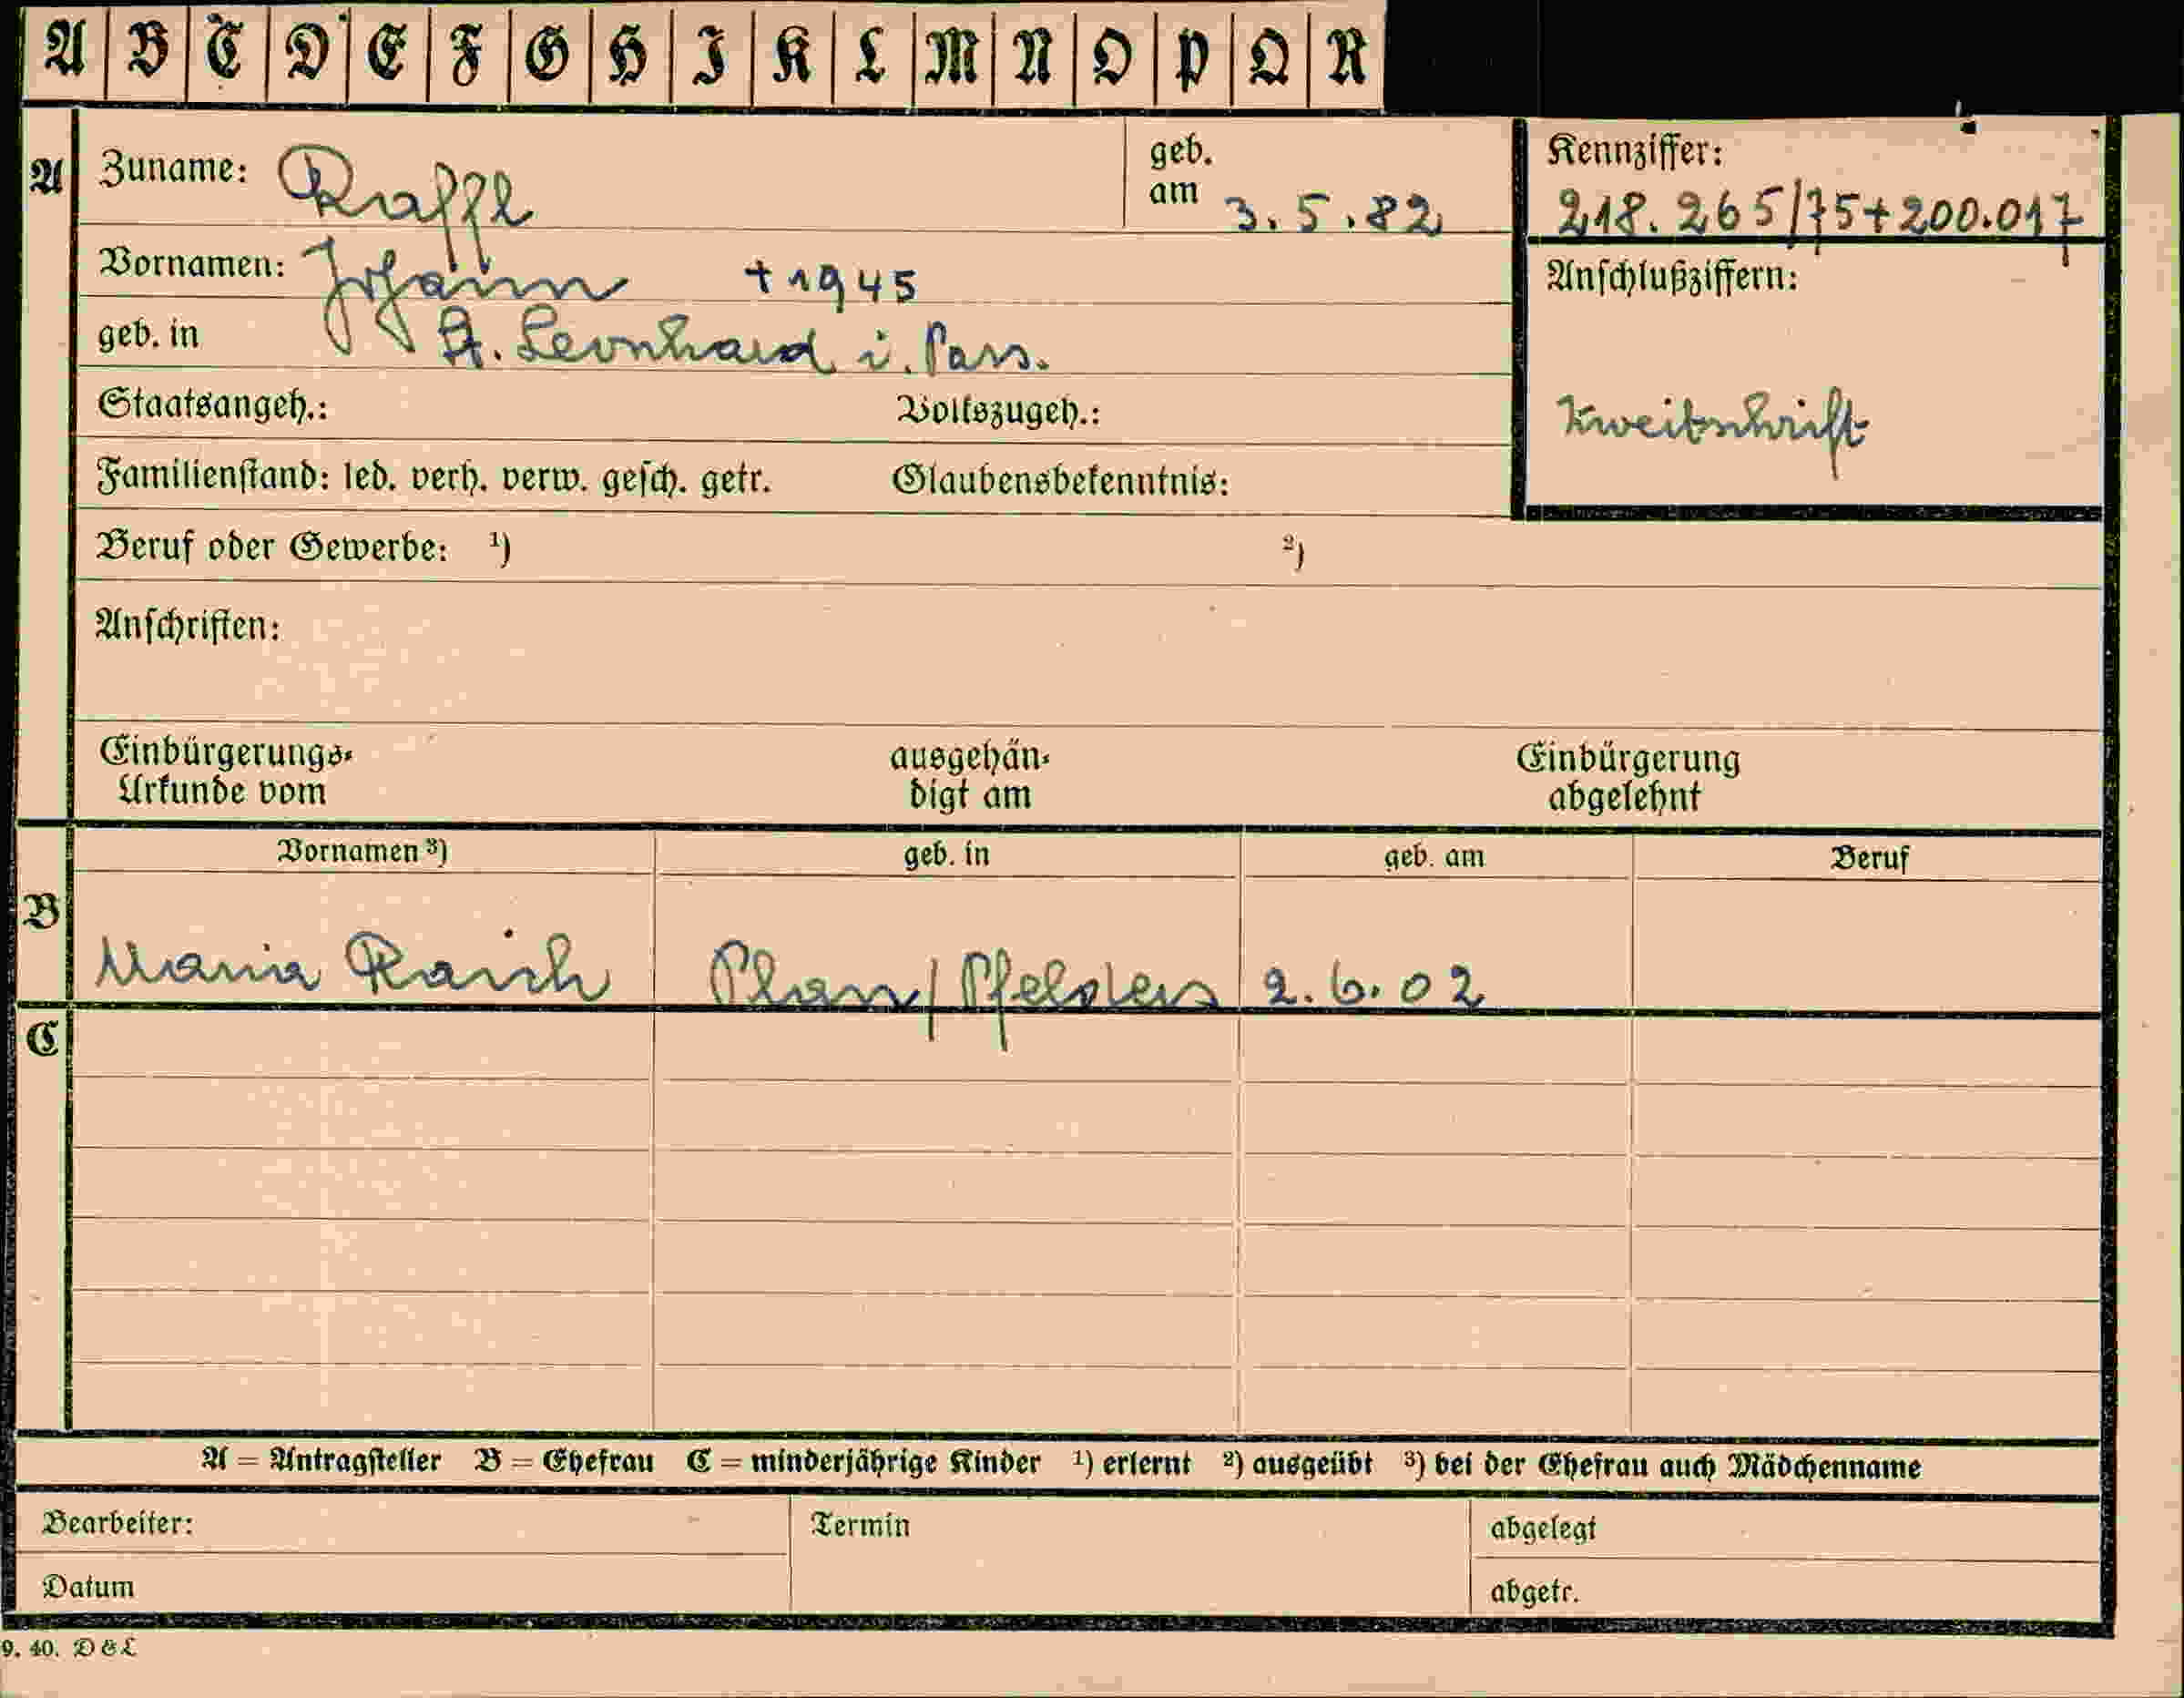 A B C D E F G H I K L M N O P Q R
A Zuname: Raffl geb. am 3.5.82
Kennziffer: 218.265/75+200.017
Vornamen: Johann +1945
Anschlußziffern:
geb. in St. Leonhard i. Pass.
Staatsangeh.: Volkszugeh.:
Zweitschrift
Familienstand: led. verh. verw. gesch. getr. Glaubensbekenntnis:
Beruf oder Gewerbe: ¹) ²)
Anschriften:
Einbürgerungs- ausgehän- Einbürgerung
Urkunde vom digt am abgelehnt
Vornamen ³) geb. in geb. am Beruf
B
Maria Raich Plan/Pfelders 2.6.02
C
A = Antragsteller B = Ehefrau C = minderjährige Kinder ¹) erlernt ²) ausgeübt ³) bei der Ehefrau auch Mädchenname
Bearbeiter: Termin abgelegt
Datum abgetr.
9. 40. D & L